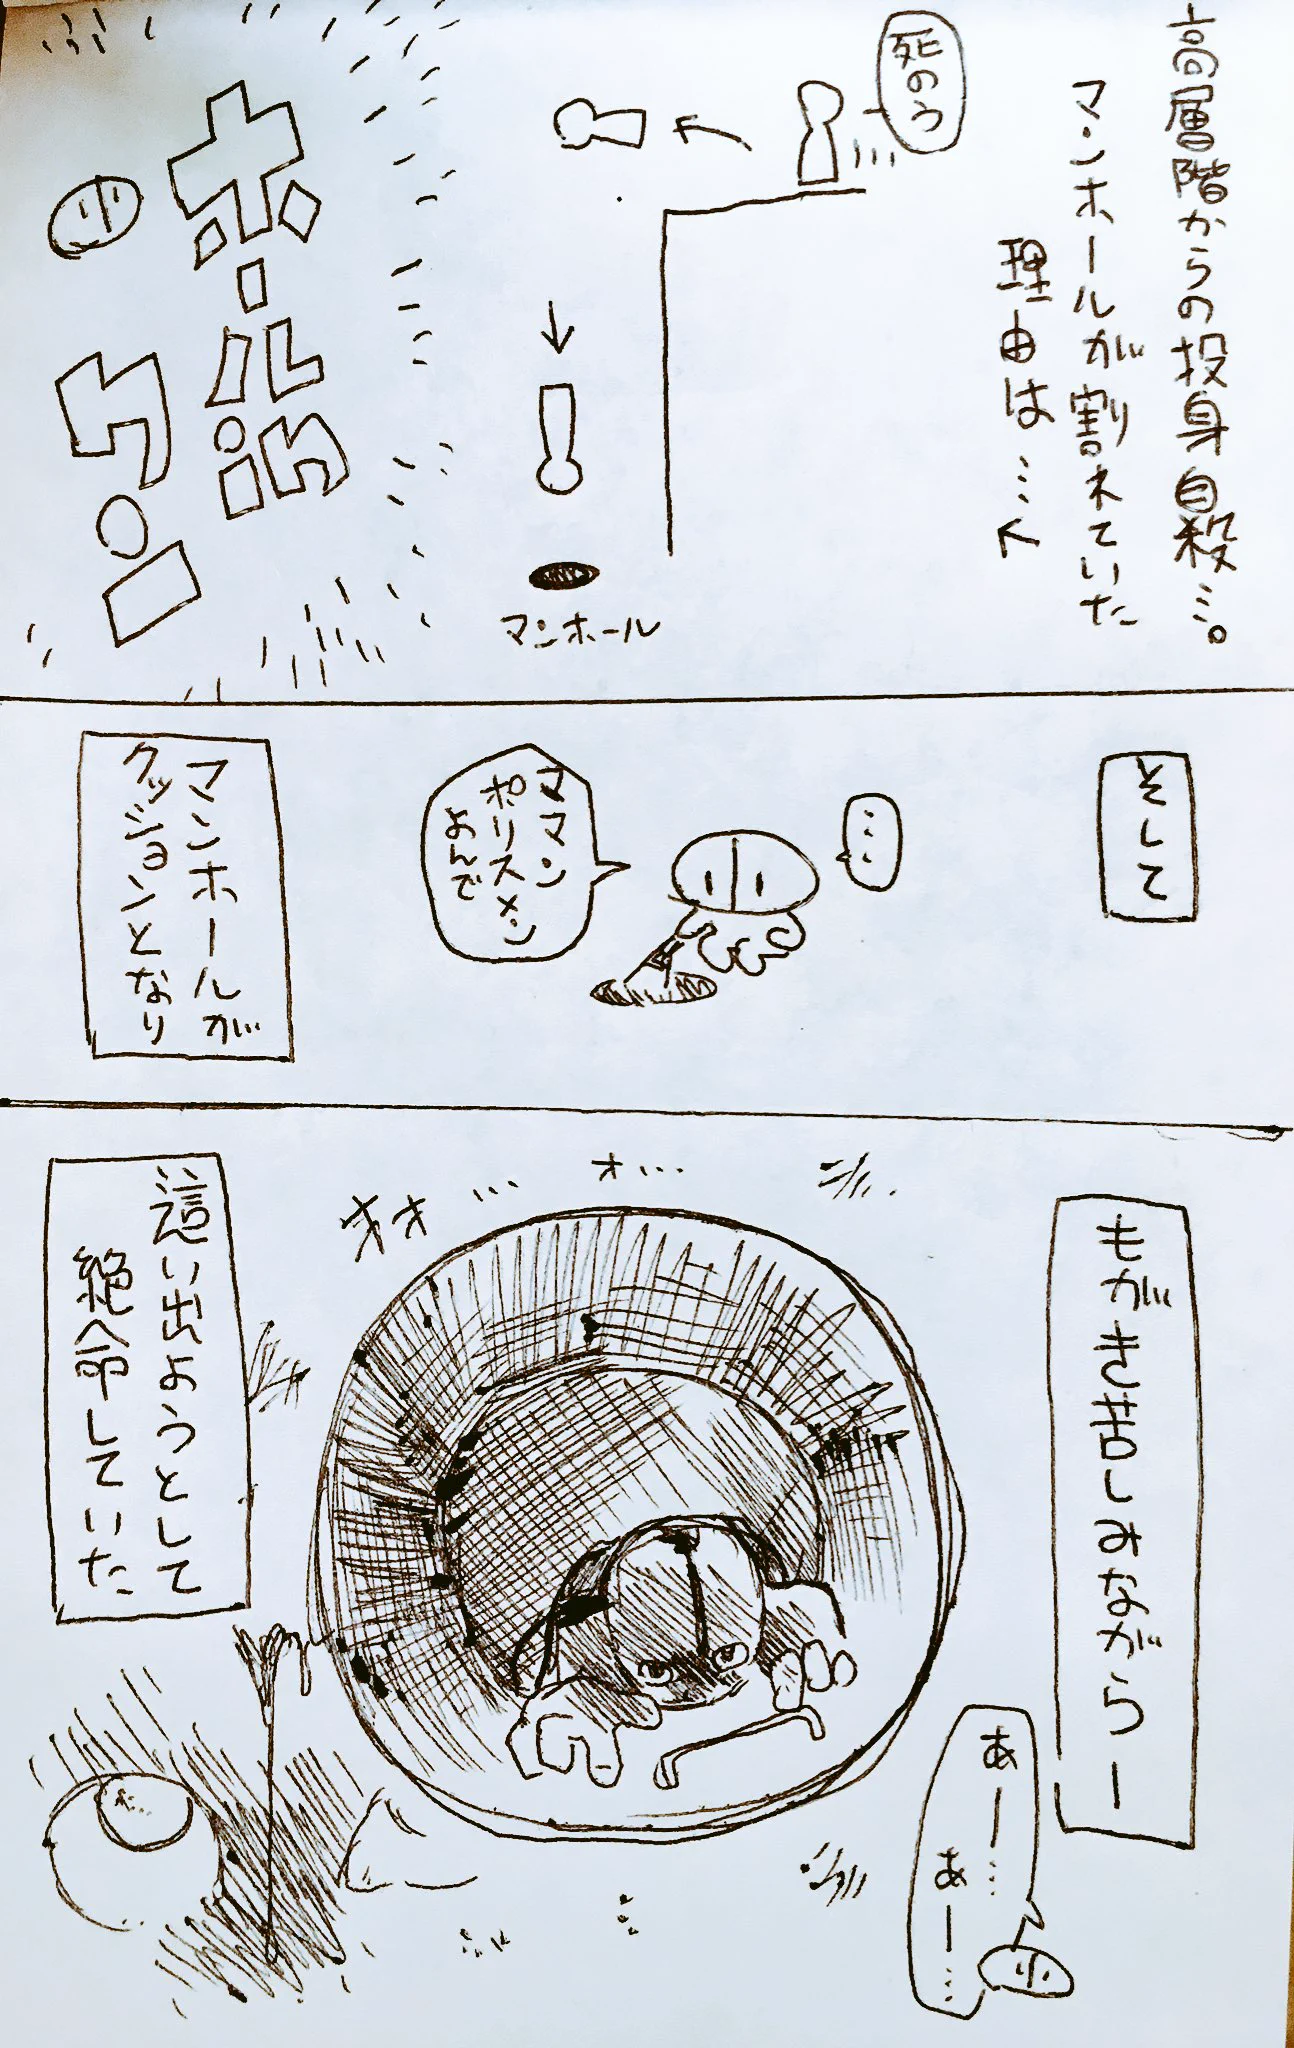 高層階からの投身自殺…。
マンホールが割れていた
理由は…
死のう
マンホール
ホールin
ワン
そして
…
ママン
ポリスメン
よんで
マンホールが
クッションとなり
もがき苦しみながらー
オ…
オオ…
這い出ようとして
絶命していた
あー…
あー…